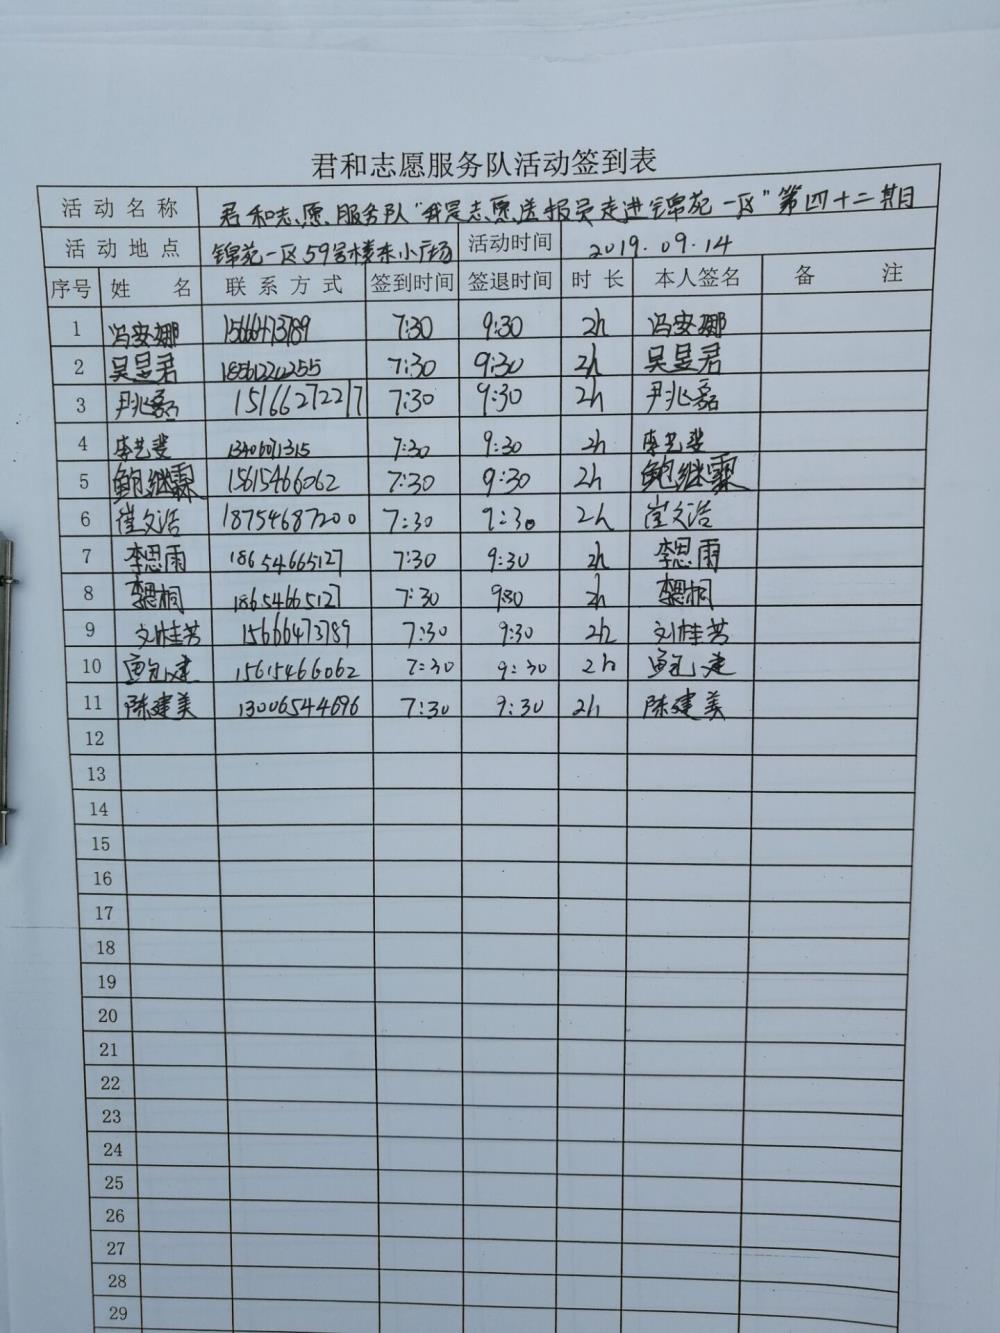 君和志愿服务队活动签到表
活动名称 君和志愿服务队"我是志愿送报员走进锦苑一区"第四十二期目
活动地点 锦苑一区59号楼东小广场 活动时间 2019.09.14
序号 姓名 联系方式 签到时间 签退时间 时长 本人签名 备注
1 冯安娜 15666473789 7:30 9:30 2h 冯安娜
2 吴昱君 18561224255 7:30 9:30 2h 吴昱君
3 尹兆磊 15166272217 7:30 9:30 2h 尹兆磊
4 李艺斐 13406071315 7:30 9:30 2h 李艺斐
5 鲍继霖 15615466062 7:30 9:30 2h 鲍继霖
6 崔文浩 18754687200 7:30 9:30 2h 崔文浩
7 李思雨 18654665127 7:30 9:30 2h 李思雨
8 李思桐 18654665127 7:30 9:30 2h 李思桐
9 刘桂芳 15666473789 7:30 9:30 2h 刘桂芳
10 15615466062 7:30 9:30 2h
11 陈建美 13006544696 7:30 9:30 2h 陈建美
12
13
14
15
16
17
18
19
20
21
22
23
24
25
26
27
28
29